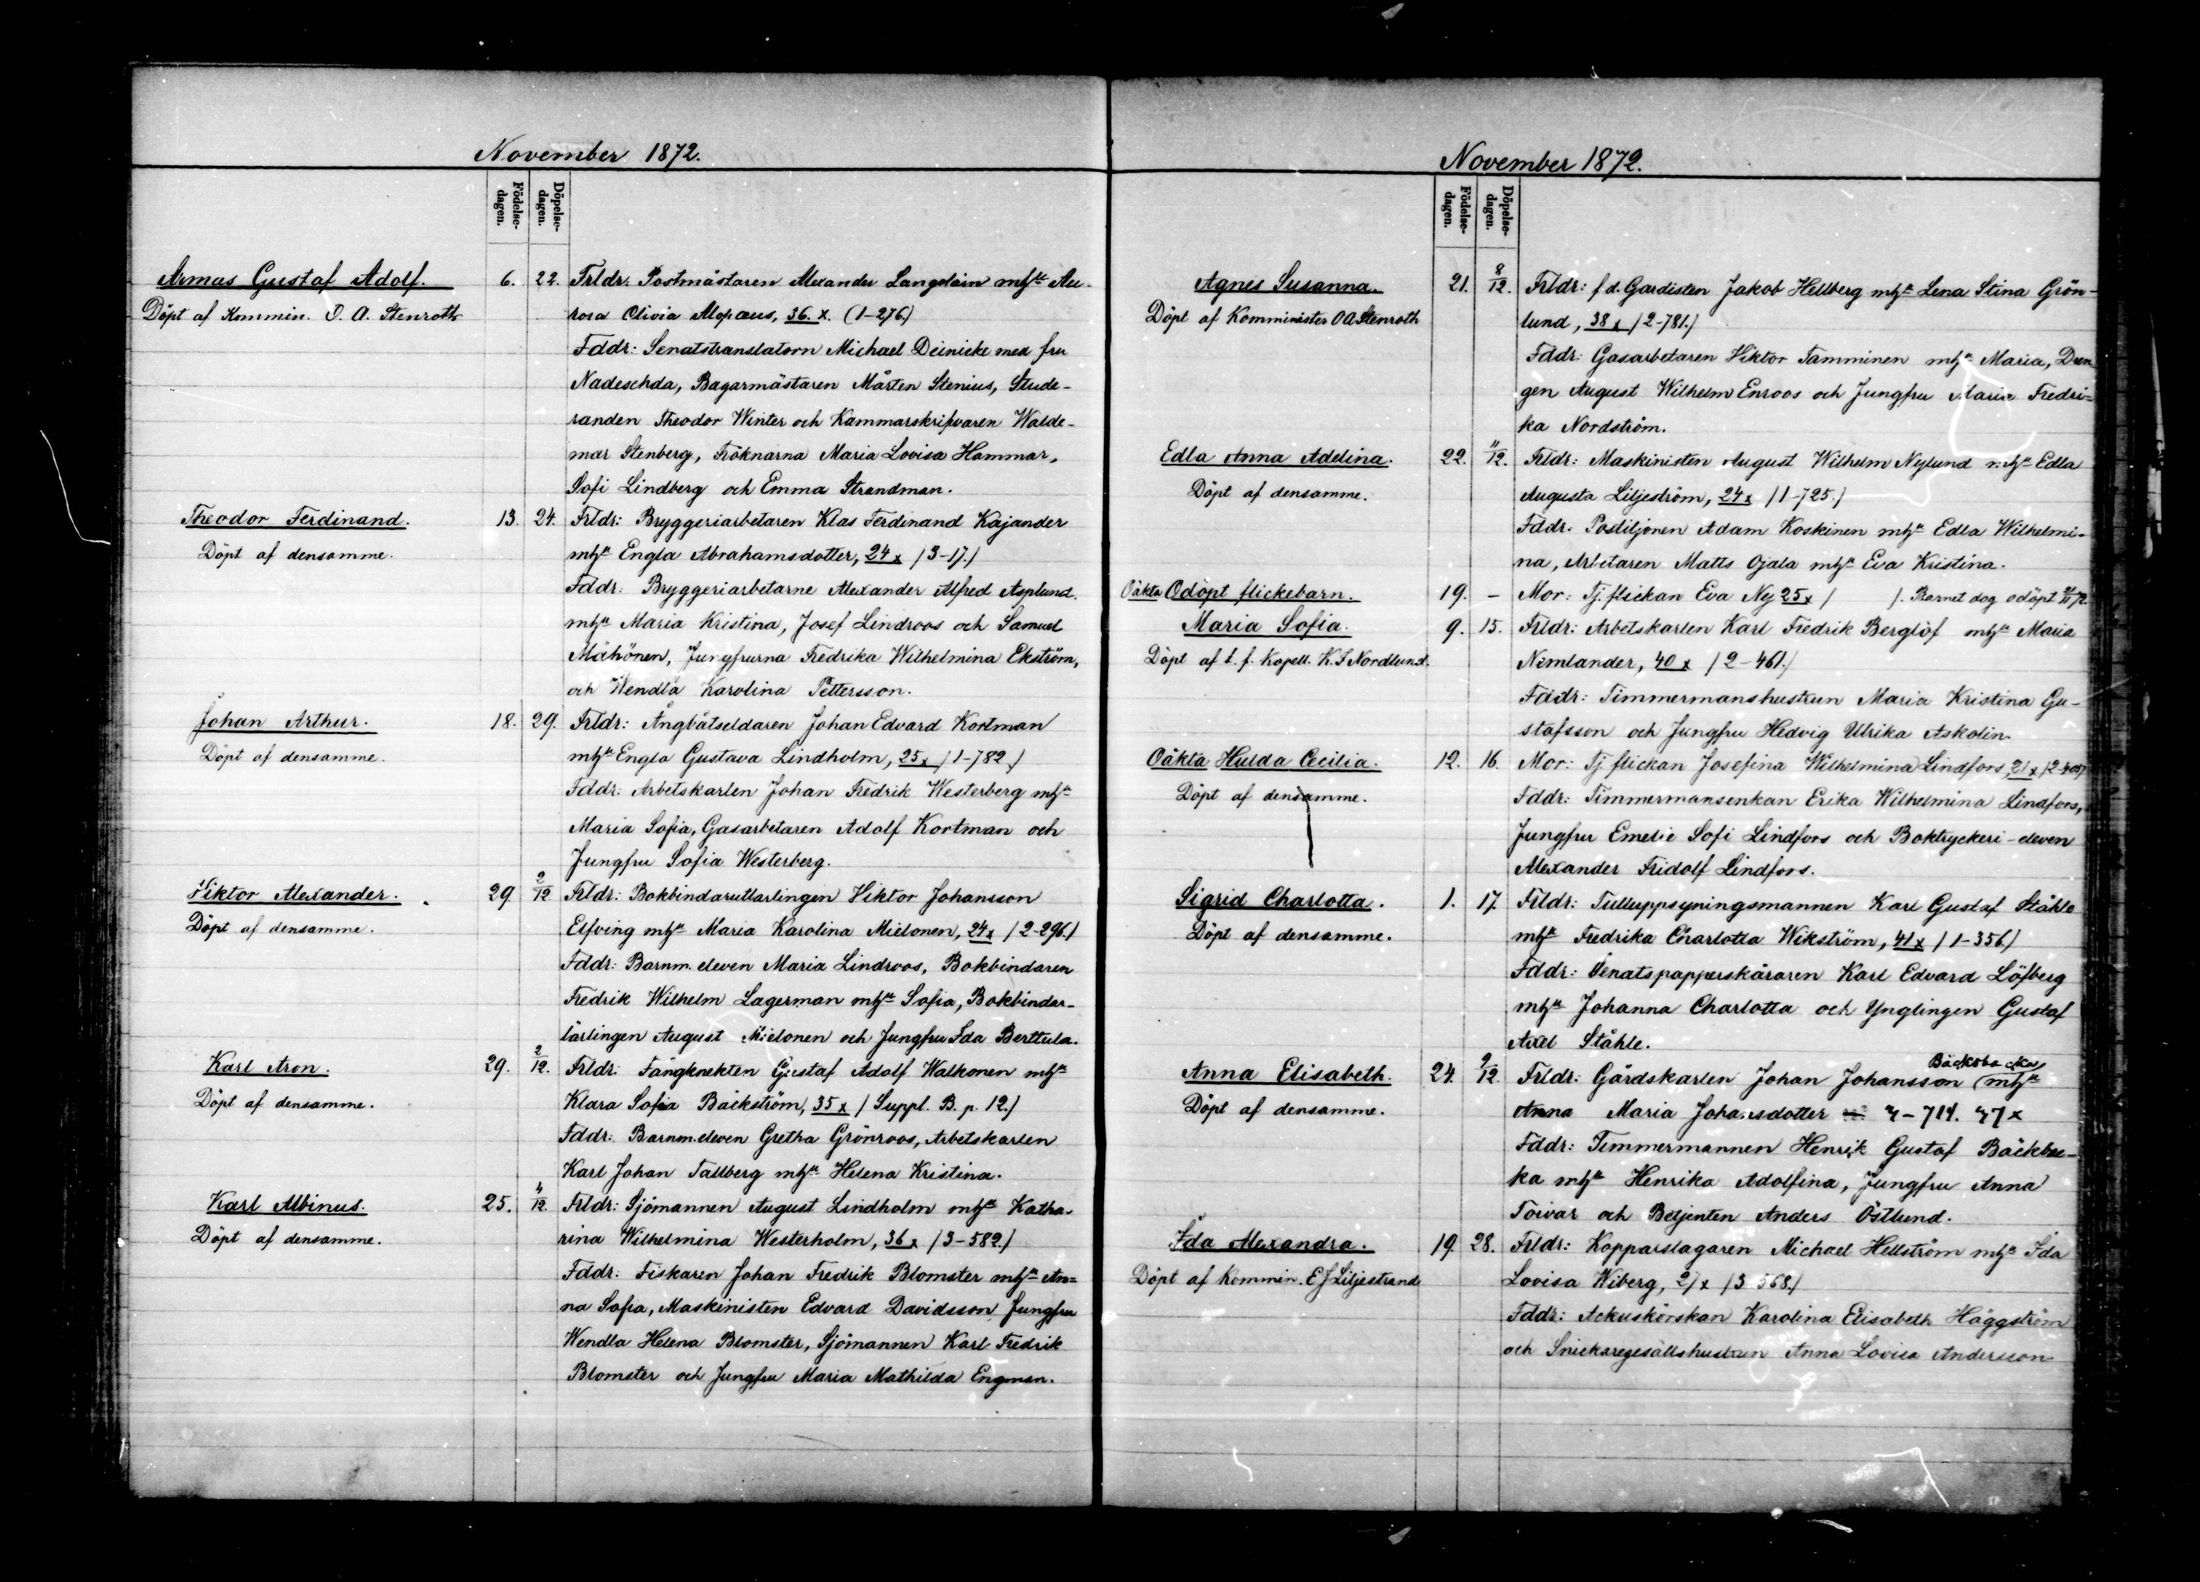 November 1872.
Födelse-
dagen.
Döpelse-
dagen.
Armas Gustaf Adolf. 6. 22. Frldr: Postmästaren Alexander Langelain mhst Au-
Döpt af Kommin. O. A. Stenroth rora Olivia Alopæus, 36. x. (1-276)
Fddr: Senatstranslatorn Michael Deinicke med fru
Nadeschda, Bagarmästaren Mårten Stenius, Stude-
randen Theodor Winter och Kammarskrifvaren Walde-
mar Stenberg, Fröknarna Maria Lovisa Hammar,
Sofi Lindberg och Emma Strandman.
Theodor Ferdinand. 13. 24. Frldr: Bryggeriarbetaren Klas Ferdinand Kajander
Döpt af densamme. mhst Engla Abrahamsdotter, 24 x (3-17.)
Fddr: Bryggeriarbetarne Alexander Alfred Asplund
mhst Maria Kristina, Josef Lindroos och Samuel
Mähönen, Jungfrurna Fredrika Wilhelmina Ekström,
och Wendla Karolina Pettersson.
Johan Arthur. 18. 29. Frldr: Ångbåtseldaren Johan Edvard Kortman
Döpt af densamme. mhst Engla Gustava Lindholm, 25 x (1-782.)
Fddr: Arbetskarlen Johan Fredrik Westerberg mhst
Maria Sofia, Gasarbetaren Adolf Kortman och
Jungfru Sofia Westerberg.
Viktor Alexander. 29 2/12 Frldr: Bokbindarutlärlingen Viktor Johansson
Döpt af densamme. Elfving mhst Maria Karolina Mielonen, 24 x (2-296.)
Fddr: Barnm. eleven Maria Lindroos, Bokbindaren
Fredrik Wilhelm Lagerman mhst Sofia, Bokbindar-
lärlingen August Mielonen och Jungfru Ida Berttula.
Karl Aron. 29. 2/12. Frldr: Fångknekten Gustaf Adolf Walkonen mhst
Döpt af densamme. Klara Sofia Bäckström, 35 x (Suppl. B. p. 12.)
Fddr: Barnm. eleven Gretha Grönroos, Arbetskarlen
Karl Johan Tallberg mhst Helena Kristina.
Karl Albinus. 25. 4/12. Frldr: Sjömannen August Lindholm mhst Katha-
Döpt af densamme. rina Wilhelmina Westerholm, 36 x (3-582.)
Fddr: Fiskaren Johan Fredrik Blomster mhst An-
na Sofia, Maskinisten Edvard Davidsson Jungfru
Wendla Helena Blomster, Sjömannen Karl Fredrik
Blomster och Jungfru Maria Mathilda Engman.
November 1872.
Födelse-
dagen.
Döpelse-
dagen.
Agnes Susanna. 21. 8/12. Frldr: f.d. Gardisten Jakob Hellberg mhst Lena Stina Grön-
Döpt af Komminister O A Stenroth lund, 38 x (2-781.)
Fddr: Gasarbetaren Viktor Tamminen mhst Maria, Drän
gen August Wilhelm Enroos och Jungfru Maria Fredri-
ka Nordström.
Edla Anna Adelina. 22. 11/12. Frldr: Maskinisten August Wilhelm Nylund mhst Edla
Döpt af densamme. Augusta Liljeström, 24 x (1-725.)
Fddr: Postiljonen Adam Koskinen mhst Edla Wilhelmi-
na, Arbetaren Matts Ojala mhst Eva Kristina.
Oäkta Odöpt flickebarn. 19. - Mor: Tj. flickan Eva Ney 25 x ( ). Barnet dog odöpt
Maria Sofia. 9. 15. Frldr: Arbetskarlen Karl Fredrik Berglöf mhst Maria
Döpt af t. f. Kapell. K. J Nordlund. Nimlander, 40 x (2-461.)
Fddr: Timmermanshustrun Maria Kristina Gu-
stafsson och Jungfru Hedvig Ulrika Askolin.
Oäkta Hulda Cecilia. 12. 16. Mor: Tj flickan Josefina Wilhelmina Lindfors, 21 x
Döpt af densamme. Fddr: Timmermansenkan Erika Wilhelmina Lindfors,
Jungfru Emelie Sofi Lindfors och Boktryckeri-eleven
Alexander Fridolf Lindfors.
Sigrid Charlotta. 1. 17. Frldr: Tulluppsyningsmannen Karl Gustaf Ståhle
Döpt af densamme. mhst Fredrika Charlotta Wikström, 41 x (1-356.)
Fddr: Senatspapperskäraren Karl Edvard Löfberg
mhst Johanna Charlotta och Ynglingen Gustaf
Axel Ståhle.
Bäckbacka
Anna Elisabeth. 24. 9/12. Frldr: Gårdskarlen Johan Johansson (mhst
Döpt af densamme. Anna Maria Johansdotter 4-714. 47 x
Fddr: Timmermannen Henrik Gustaf Bäckbac-
ka mhst Henrika Adolfina, Jungfru Anna
Toivar och Betjenten Anders Östlund.
Ida Alexandra. 19. 28. Frldr: Kopparslagaren Michael Hellström mhst Ida
Döpt af Kommin. E J Liljestrand Lovisa Wiberg, 27 x (3-568.)
Fddr: Ackuskörskan Karolina Elisabeth Häggström
och Snickaregesällshustrun Anna Lovisa Andersson